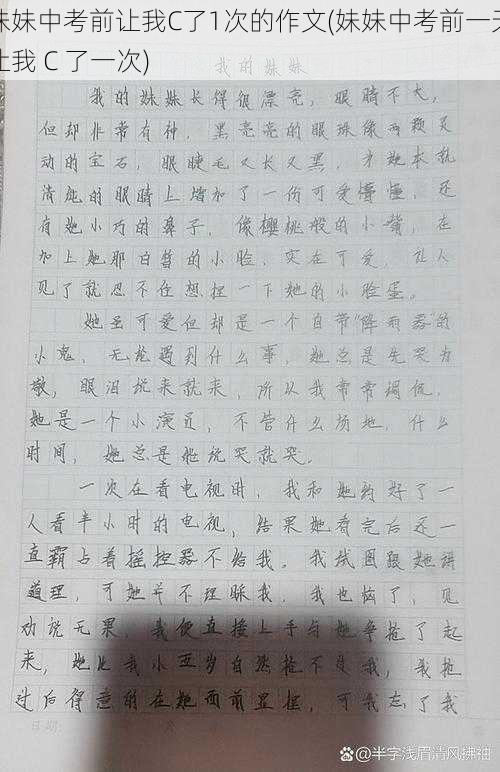 妹妹中考前让我C了1次的作文(妹妹中考前一天
让我 C 了一次)
我的妹妹
我的妹妹长得很漂亮，眼睛不大，
但却非常有神，黑亮亮的眼珠像两颗灵
动的宝石，眼睫毛又长又黑，为她本就
清纯的眼睛上增加了一份可爱懵懂，还
有她小巧的鼻子，像樱桃般的小嘴，在
加上她那白皙的小脸，实在可爱，让人
见了就忍不住想捏一下她的小脸蛋。
她虽可爱但却是一个自带"降雨器"的
小鬼，无论遇到什么事，她总是先哭为
敬，眼泪说来就来，所以我常常调侃，
她是一个小演员，不管什么场地，什么
时间，她总是能说哭就哭。
一次在看电视时，我和她约好了一
人看半小时的电视，结果她看完后还一
直霸占着摇控器不给我。我试图跟她讲
道理，可她并不理睬我，我也恼了，见
劝说无果，我便直接上手与她争抢了起
来，她比我小五岁自然抢不过我，我抢
过后得意的在她面前显摆，可我忘了我
日期:
@半字浅眉清风拂袖